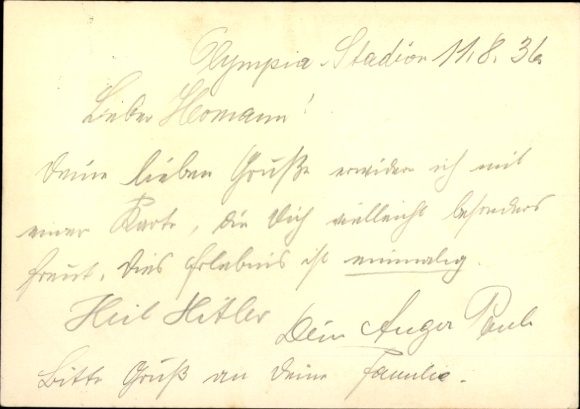 Olympia-Stadion 11.8.36.
Lieber Homann!
Deine lieben Grüße erwidere ich mit
einer Karte, die Dich vielleicht besonders
freut. Dies Erlebnis ist einmalig.
Heil Hitler Dein
Bitte Gruß an Deine Familie.